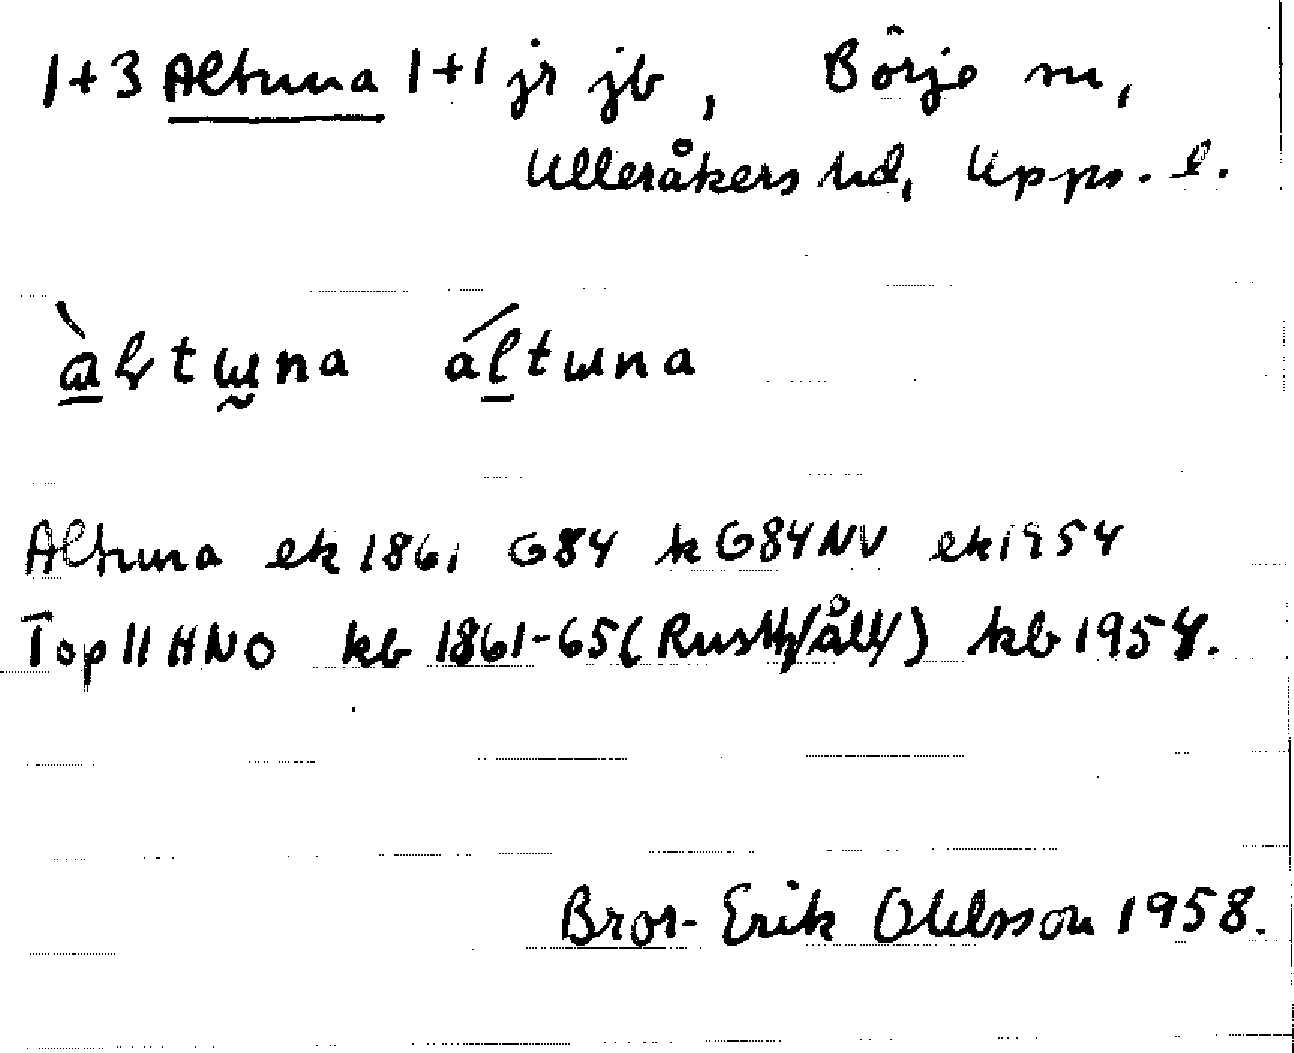 1+3 Altuna 1+1 jr jb, Börje sn,
Ulleråkers hd, Upps. l.
àltɯna áltɯna
Altuna ek 1861 G84 k G84NV ek 1954
Top 11 H NO kb 1861-65 (Rusth/åll/) kb 1954.
Bror-Erik Ohlsson 1958.